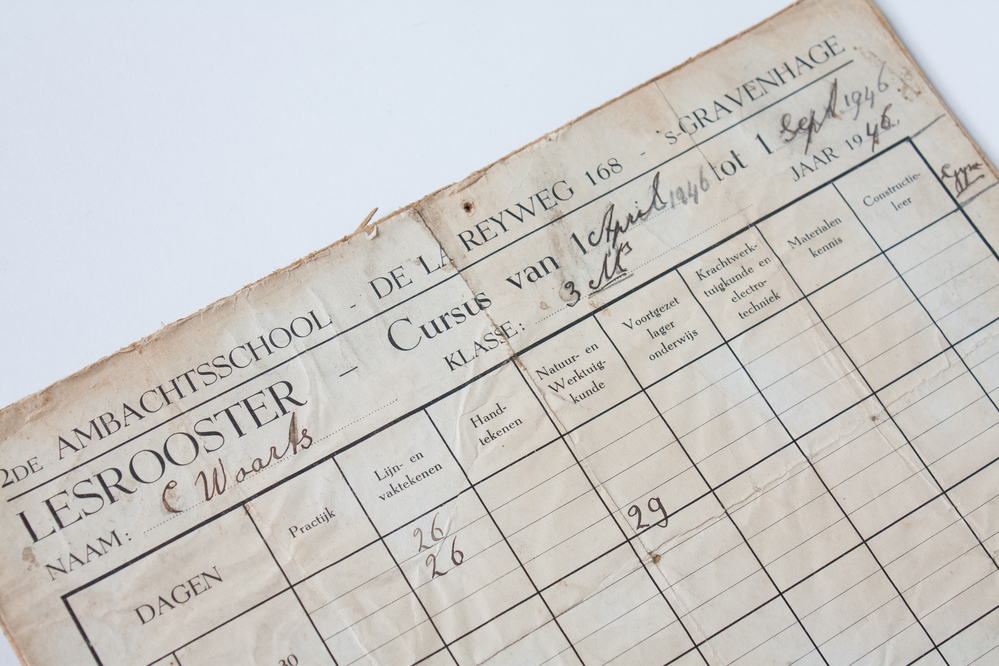 2DE AMBACHTSSCHOOL - DE LA REYWEG 168 - 'S-GRAVENHAGE.
LESROOSTER - Cursus van 1 April 1946 tot 1 Sept 1946.
NAAM: C Waarts KLASSE: 3 JAAR 1946.
DAGEN
Practijk
Lijn- en
vaktekenen
Hand-
tekenen
Natuur- en
Werktuig-
kunde
Voortgezet
lager
onderwijs
Krachtwerk-
tuigkunde en
electro-
techniek
Materialen
kennis
Constructie-
leer
26
26
29
30